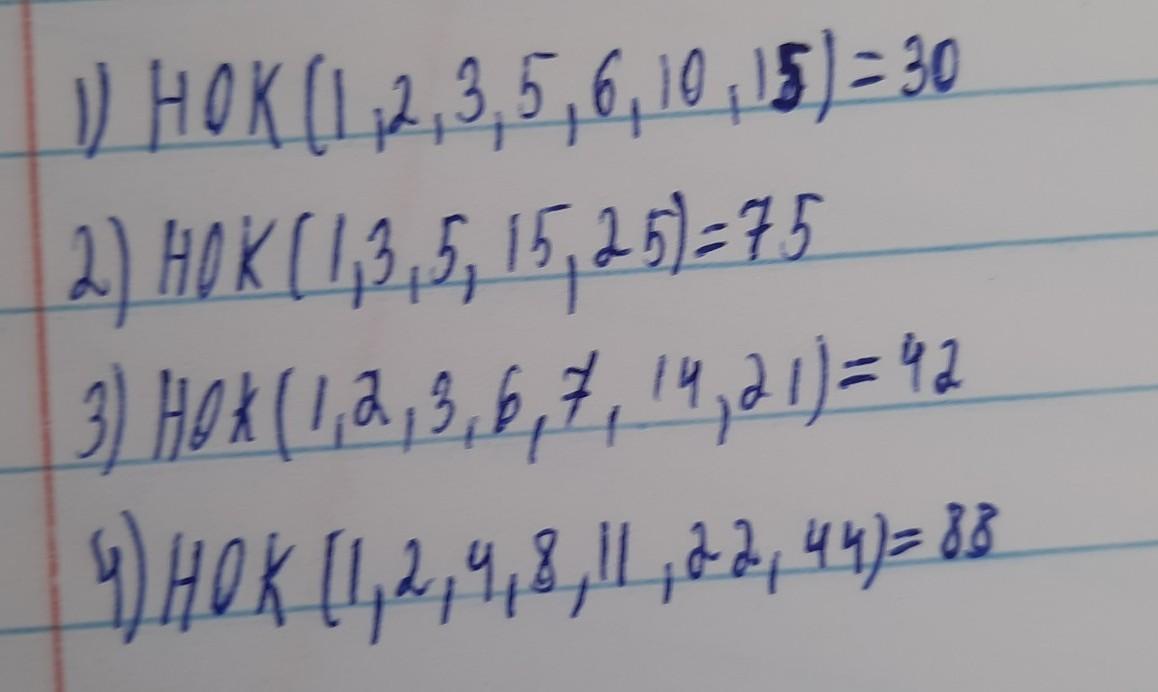 1) НОК(1,2,3,5,6,10,15)=30
2) НОК(1,3,5,15,25)=75
3) НОК(1,2,3,6,7,14,21)=42
4) НОК(1,2,4,8,11,22,44)=88